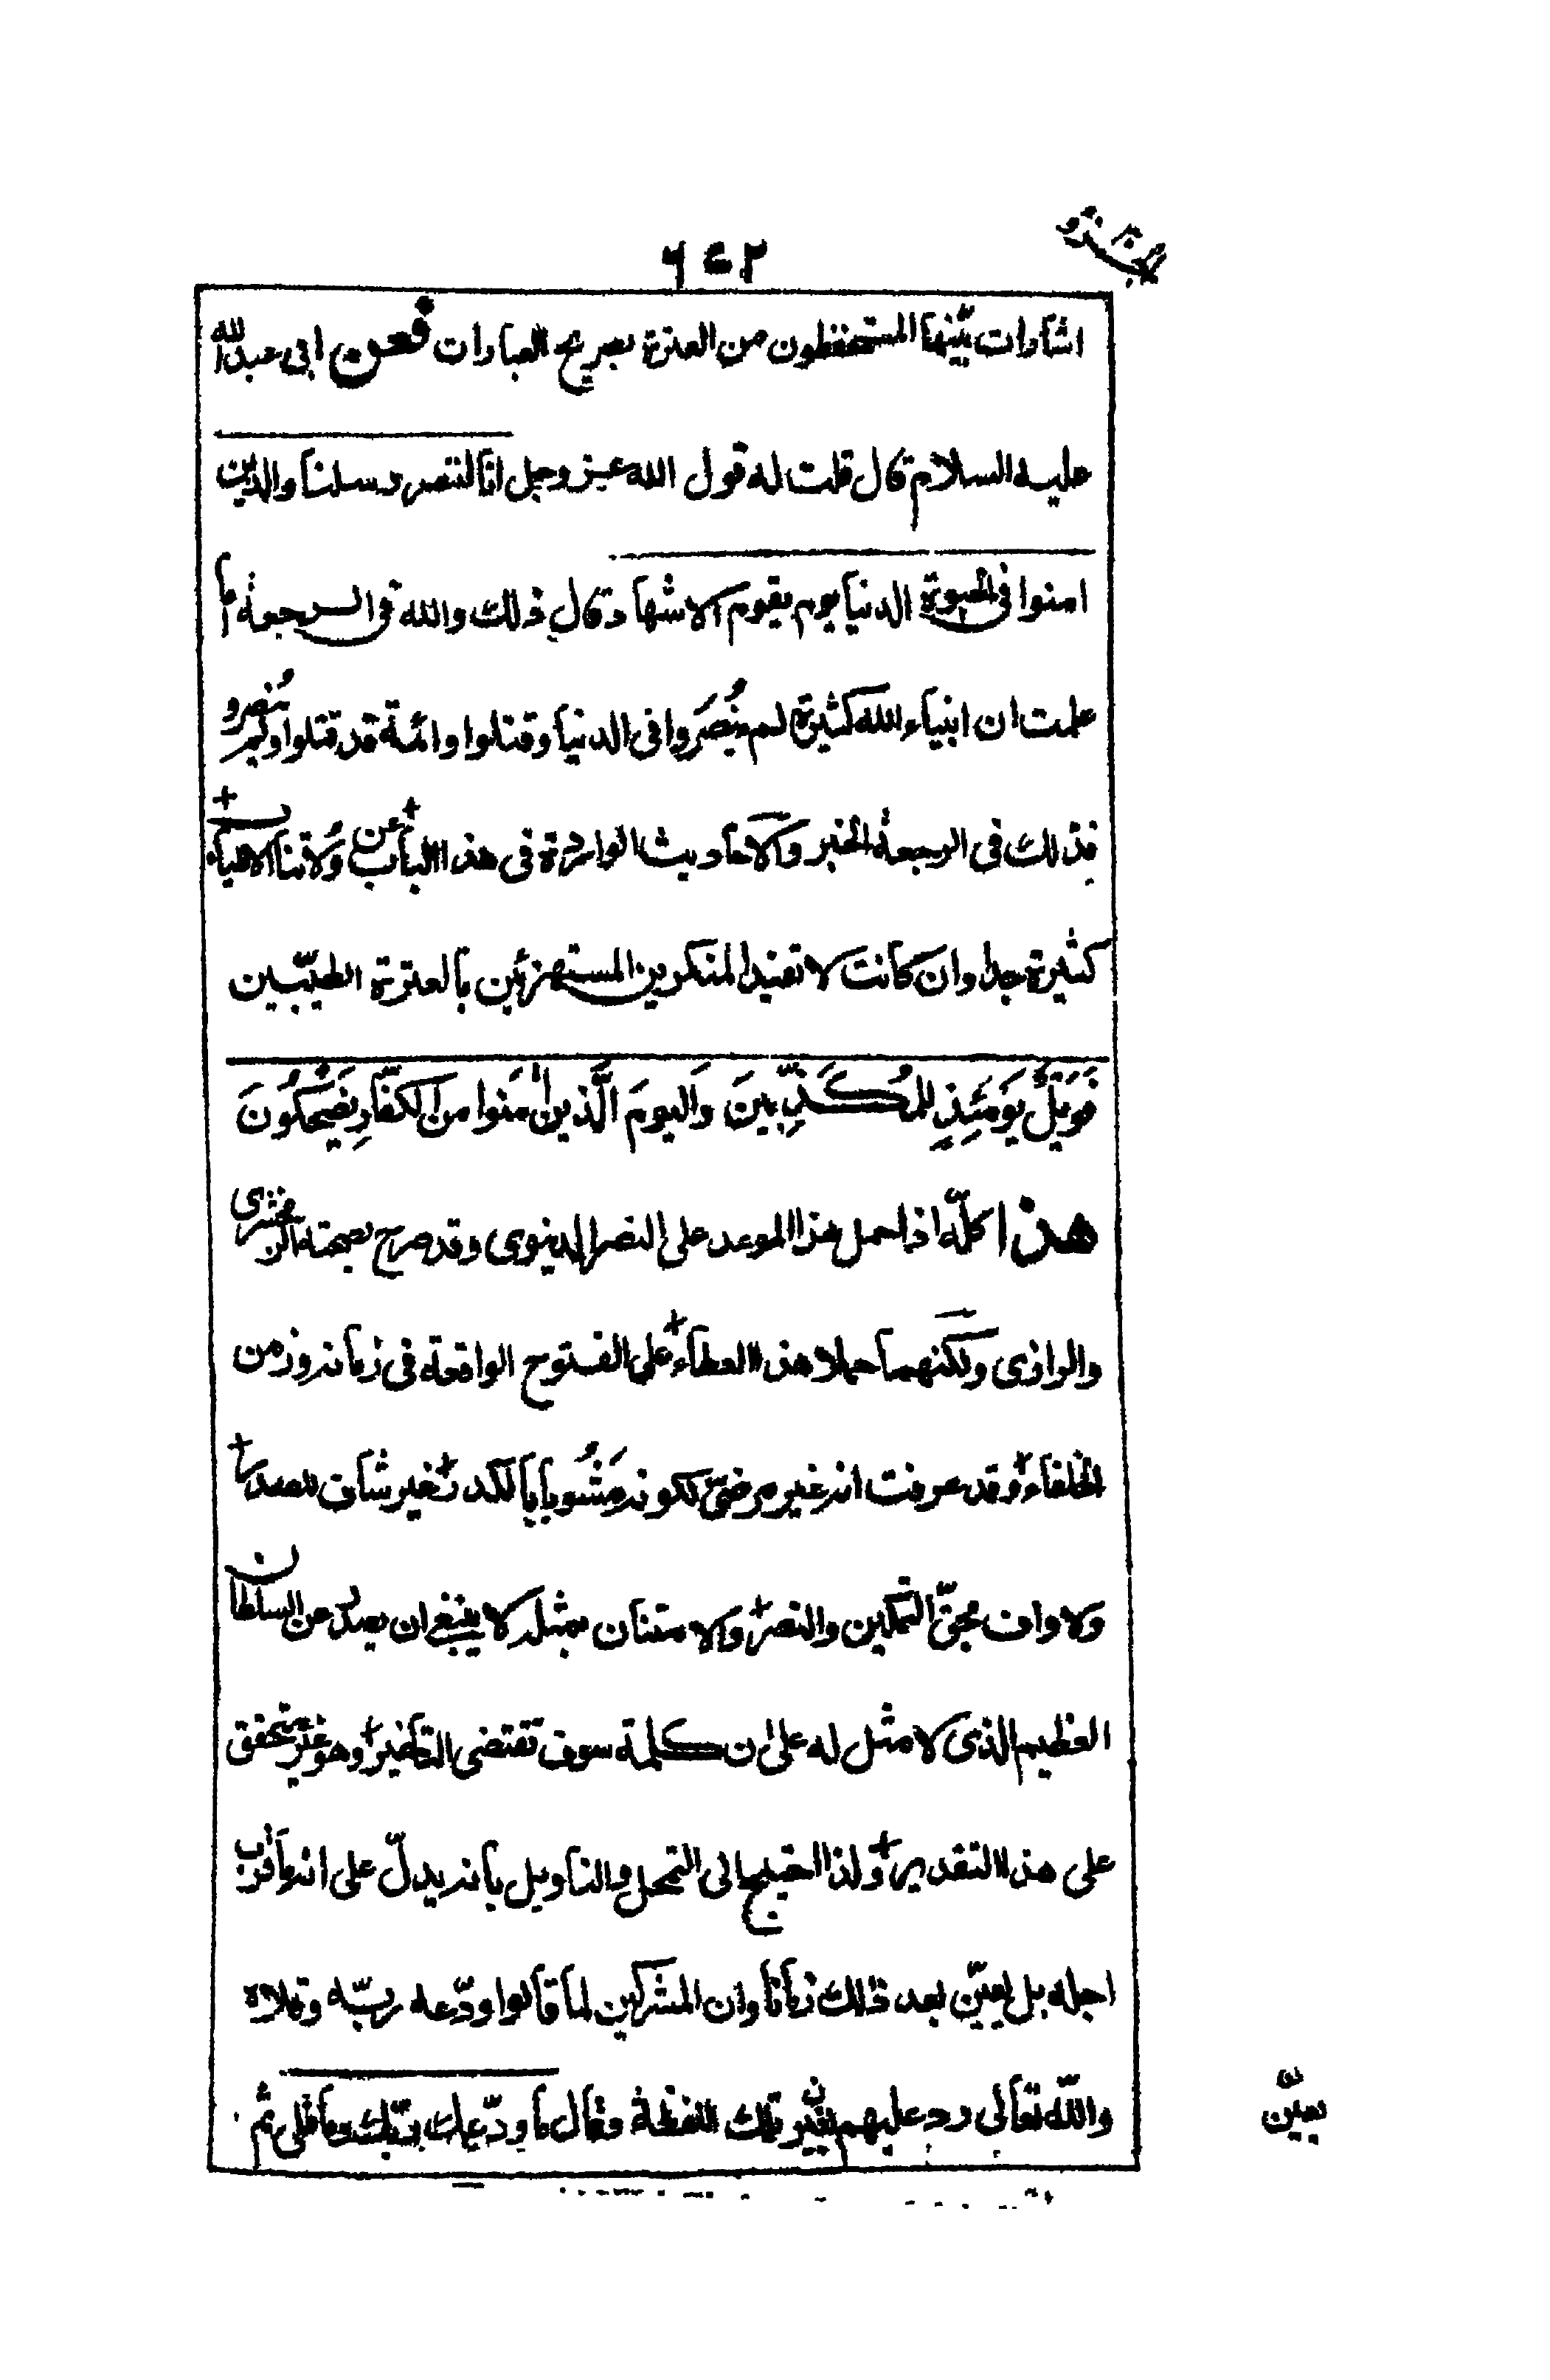 ٦٤٢
اشارات بيّنها المستحفظون من العترة بصريح العبارات فعن ابي عبد الله
عليه السلام قال قلت له قول الله عز وجل انا لننصر رسلنا والذين
امنوا في الحيوة الدنيا يوم يقوم الاشهاد قال ذلك والله في الرجعة أما
علمت ان انبياء الله كثيرة لم يُنصَروا في الدنيا وقتلوا وائمة قد قتلوا ولم يُنصروا
فذلك في الرجعة الخبر والاحاديث الواردة في هذا الباب عن وُلاتنا الاطياب
كثيرة جدا وان كانت لا تفيد المنكرين المستهزئين بالعترة الطيّبين
فَوَيْلٌ يَوْمَئِذٍ لِلْمُكَذِّبِينَ وَاليومَ الَّذين اٰمَنوا من الكفّارِ يَضحَكُونَ
هذا كلّه اذا حمل هذا الموعد على النصر الدنيوي وقد صرح بصحته الزمخشري
والرازي ولكنهما حملا هذا العطاء على الفتوح الواقعة في زمانه وزمن
الخلفاء وقد عرفت انه غير مرضيّ لكونه مَشُوبا بالكدر غير شاف للصدر
ولا واف بحقّ التمكين والنصر والامتنان بمثله لا ينبغي ان يصدر عن السلطان
العظيم الذي لا مثل له على ان كلمة سوف تقتضي التأخير وهو غير متحقق
على هذا التقدير ولذا احتيج الى التمحل والتاويل بانه يدلّ على انه ما قرب
اجله بل يعيّن بعد ذلك زمانا وان المشركين لما قالوا ودّعه ربّه وقلاه
والله تعالى رد عليهم بغير تلك اللفظة وقال ما ودّعك ربّك وما قلى ثم
يعيّن